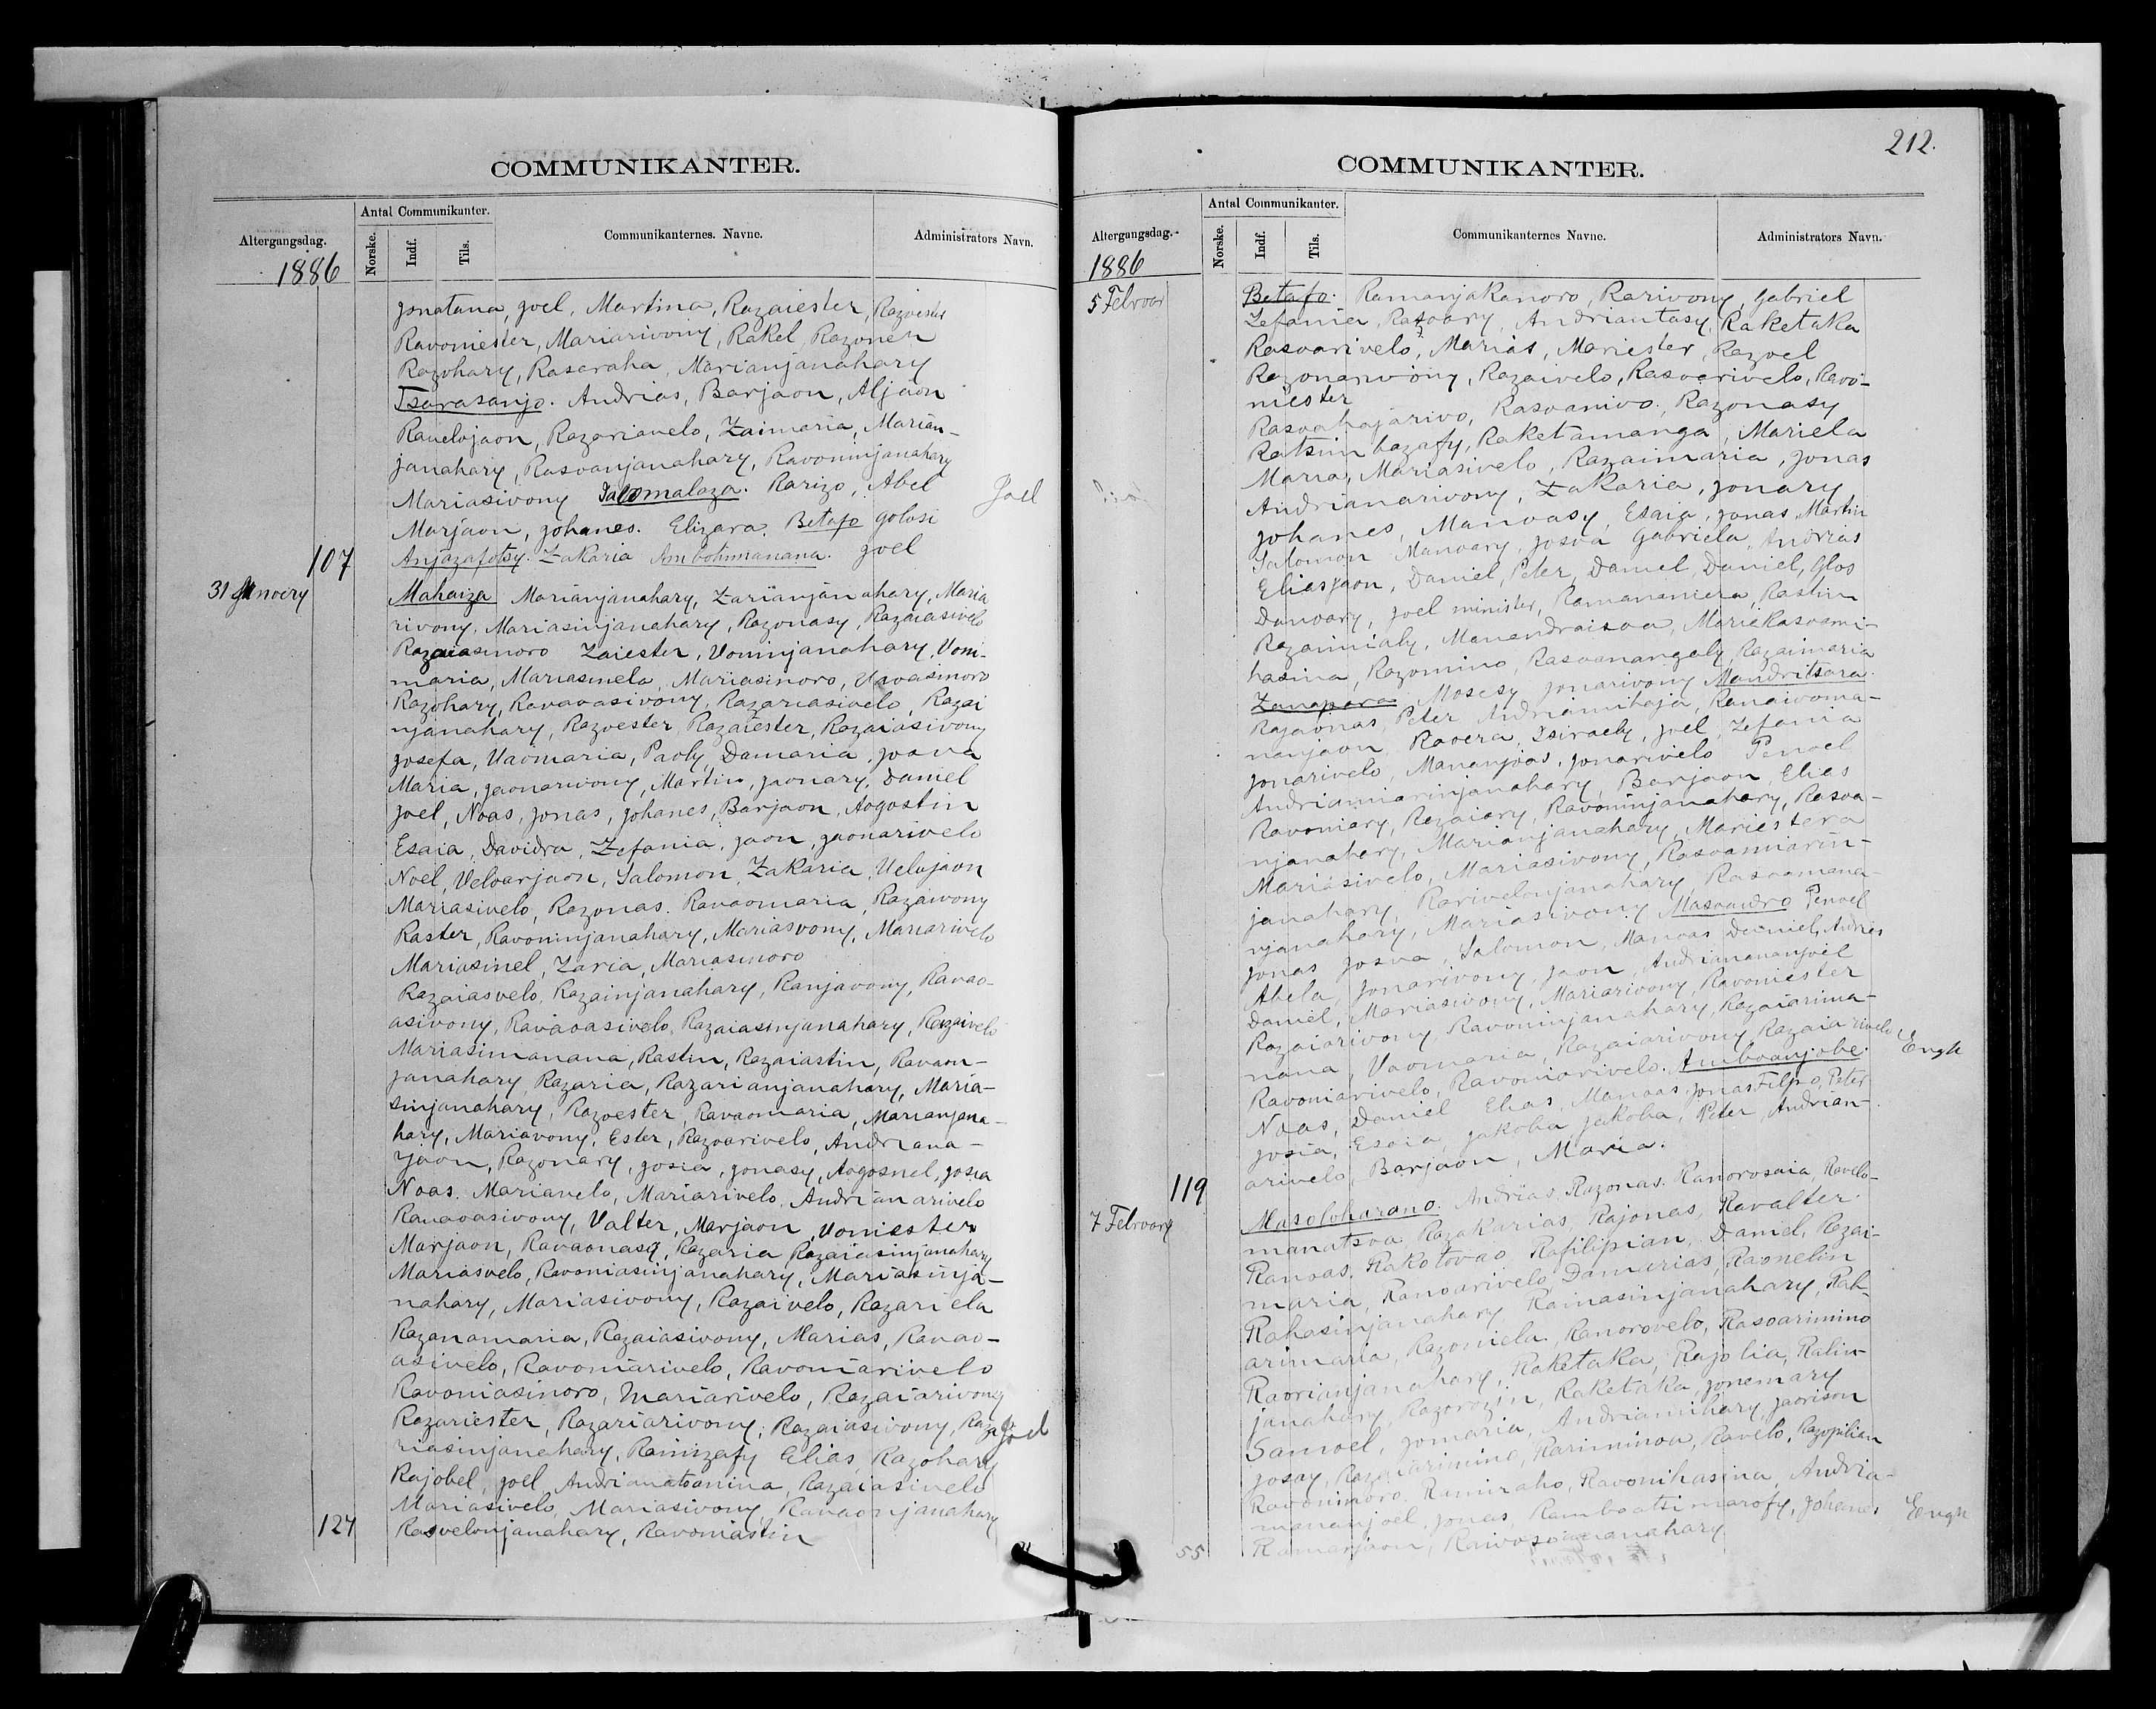 COMMUNIKANTER.
Altergangsdag.
Antal Communikanter.
Norske.
Indf.
Tils.
Communikanternes. Navne.
Administrators Navn.
1886
Jonatana, Joel, Martina, Razaiester, Razoester
Ravoniester, Mariarivony, Rakel, Razonen
Razohary, Rasaraha, Marianjanahary
Tsarasanjo. Andrias, Barjaon, Aljaon
Ravelojaon, Razarianelo, Zaimaria, Marian-
janahary, Rasoanjanahary, Ravoninjanahary
Mariasivony Ialomalaza. Rarizo, Abel
Joel
Marjaon, Johanes. Elizara. Betafo golosi
107 Anjazafotsy. Zakaria Ambohimanana. Joel
31 Janoery Mahaiza Marianjanahary, Zarianjanahary, Maria
rivony, Mariasinjanahary, Razonasy, Razaiasivelo
Razaiasinoro Zaiester, Voninjanahary, Voni-
maria, Mariasinela, Mariasinoro,
Razohary, Ravaoasivony, Razariasivelo, Razai
njanahary, Razoester, Razaiester, Razaiasivony
Josefa, Vaomaria, Paoly, Damaria, Josva
Maria, Jaonarivony, Martin, Jaonary, Daniel
Joel, Noas, Jonas, Johanes, Barjaon, Aogostin
Esaia, Davidra, Zefania, Jaon, Jaonarivelo
Noel, Veloarjaon, Salomon, Zakaria, Velojaon
Mariasivelo, Razonas. Ravaomaria, Razaivony
Raster, Ravoninjanahary, Mariasvony, Mariarivelo
Mariasinel, Zaria, Mariasinoro
Razaiasvelo, Razainjanahary, Ranjavony, Ravao-
asivony, Ravaoasivelo, Razaiasinjanahary, Razaivelo
Mariasimanana, Rastin, Razaiastin, Ravaon-
janahary, Razaria, Razarianjanahary, Maria-
sinjanahary, Razoester, Ravaomaria, Marianjana-
hary, Mariavony, Ester, Razoarivelo, Andriana-
jaon, Razonary, Josia, Jonasy, Aogosnel, Josia
Noas. Marianelo, Mariarivelo, Andrianarivelo
Ravaoasivony, Valter, Marjaon, Voniester
Marjaon, Ravaonasy, Razaria Razaiasinjanahary
Mariasvelo, Ravoniasinjanahary, Mariasinja-
nahary, Mariasivony, Razaivelo, Razariela
Razanamaria, Razaiasivony, Marias, Ravao-
asivelo, Ravoniarivelo, Ravoniarivelo
Ravoniasinoro, Mariarivelo, Razaiarivony
Razariester, Razariarivony, Razaiasivony, Raza
Joel
riasinjanahary, Rainizafy Elias, Razohary
Rajobel, Joel, Andrianatoanina, Razaiasivelo
Mariasivelo, Mariasivony, Ravaonjanahary
124 Rasvelonjanahary, Ravoniastin
212.
COMMUNIKANTER.
Altergangsdag.
Antal Communikanter.
Norske.
Indf.
Tils.
Communikanternes Navne.
Administrators Navn.
1886
5 Febroar Betafo. Ramanjakanoro, Rarivony, Gabriel
Zefania, Razoary, Andriantasy, Raketaka
Rasoarivelo, Marias, Mariester, Razoel
Razonarivony, Razaivelo, Rasoarivelo, Ravo-
niester
Rasoahajarivo, Rasoanivo, Razonasy
Ratsimbazafy, Raketamanga, Mariela
Maria, Mariasivelo, Razaimaria, Jonas
Andrianarivony, Zakaria, Jonary
Johanes, Manoasy, Esaia, Jonas, Martin
Salomon Manoary, Josva Gabriela, Andrias
Eliasjaon, Daniel, Peter, Daniel, Daniel, Glos
Danoary, Joel minister, Ramananiera, Rastin
Razainialy, Manandraisoa, Marie Rasoami-
hasina, Razomino, Rasoanangaly, Razaimaria
Zanapara Mosesy Jonarivony Mandritsara
Rajaonas, Peter Andriamihaja, Ranaivoma-
nanjaon Raoera, Dsiraely, Joel, Zefania
Jonarivelo, Mananjoas, Jonarivelo Penoel
Andriamiarinjanahary, Barjaon, Elias
Ravoniary, Razaiary, Ravoninjanahary, Rasoa-
njanahary, Marianjanahary, Mariestera
Mariasivelo, Mariasivony, Rasoamiarin-
janahary, Rarivelonjanahary, Rasoamana-
njanahary, Mariasivony Masoandro Penoel
Jonas Josva, Salomon, Manoas, Daniel, Andrias
Abela, Jonarivony, Jaon, Andriamananjoel
Daniel, Mariasivony, Mariarivony, Ravoniester
Razaiarivony Ravoninjanahary, Razaiarima-
nana, Vaomaria, Razaiarivony Razaiarivelo
Engh
Ravoniarivelo, Ravoniarivelo. Amboanjobe.
Noas, Daniel Elias, Manoas, Jonas Filpo, Peter
Josia, Esaia, Jakoba Jakoba, Peter, Andrian-
arivelo, Barjaon, Maria.
119
7 Febroary Masoloharano. Andrias Razonas. Ranorosaia, Ravelo-
manatsoa Razakarias Rajonas, Ravalter.
Ranoas. Rakotovao Rafilipian, Daniel, Razai-
maria, Ranoarivelo, Damerias, Raonelin
Rahasinjanahary, Rainasinjanahary, Rak-
arimaria, Razoniela, Ranorovelo, Rasoarimino
Raorianjanahary, Raketaka, Rajolia, Ralin-
janahary Razorozin, Raketaka, Jonemary
Samoel, Jomaria, Andriamihary, Jaorison
Josay, Razaiarimino, Rariminoa, Ravelo, Razopilian
Ravoninoro, Ramiraho, Ravonihasina, Andria-
mananjoel, Jonas, Ramboatsimarofy, Johanes
Engh
55 Ramarjaon, Raivosoananahary